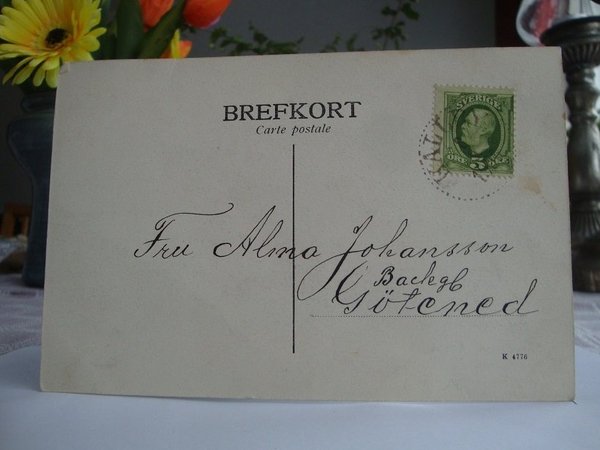 BREFKORT
Carte postale
SVERIGE
5
Fru Alma Johansson
Backgb
Götened
K 4776